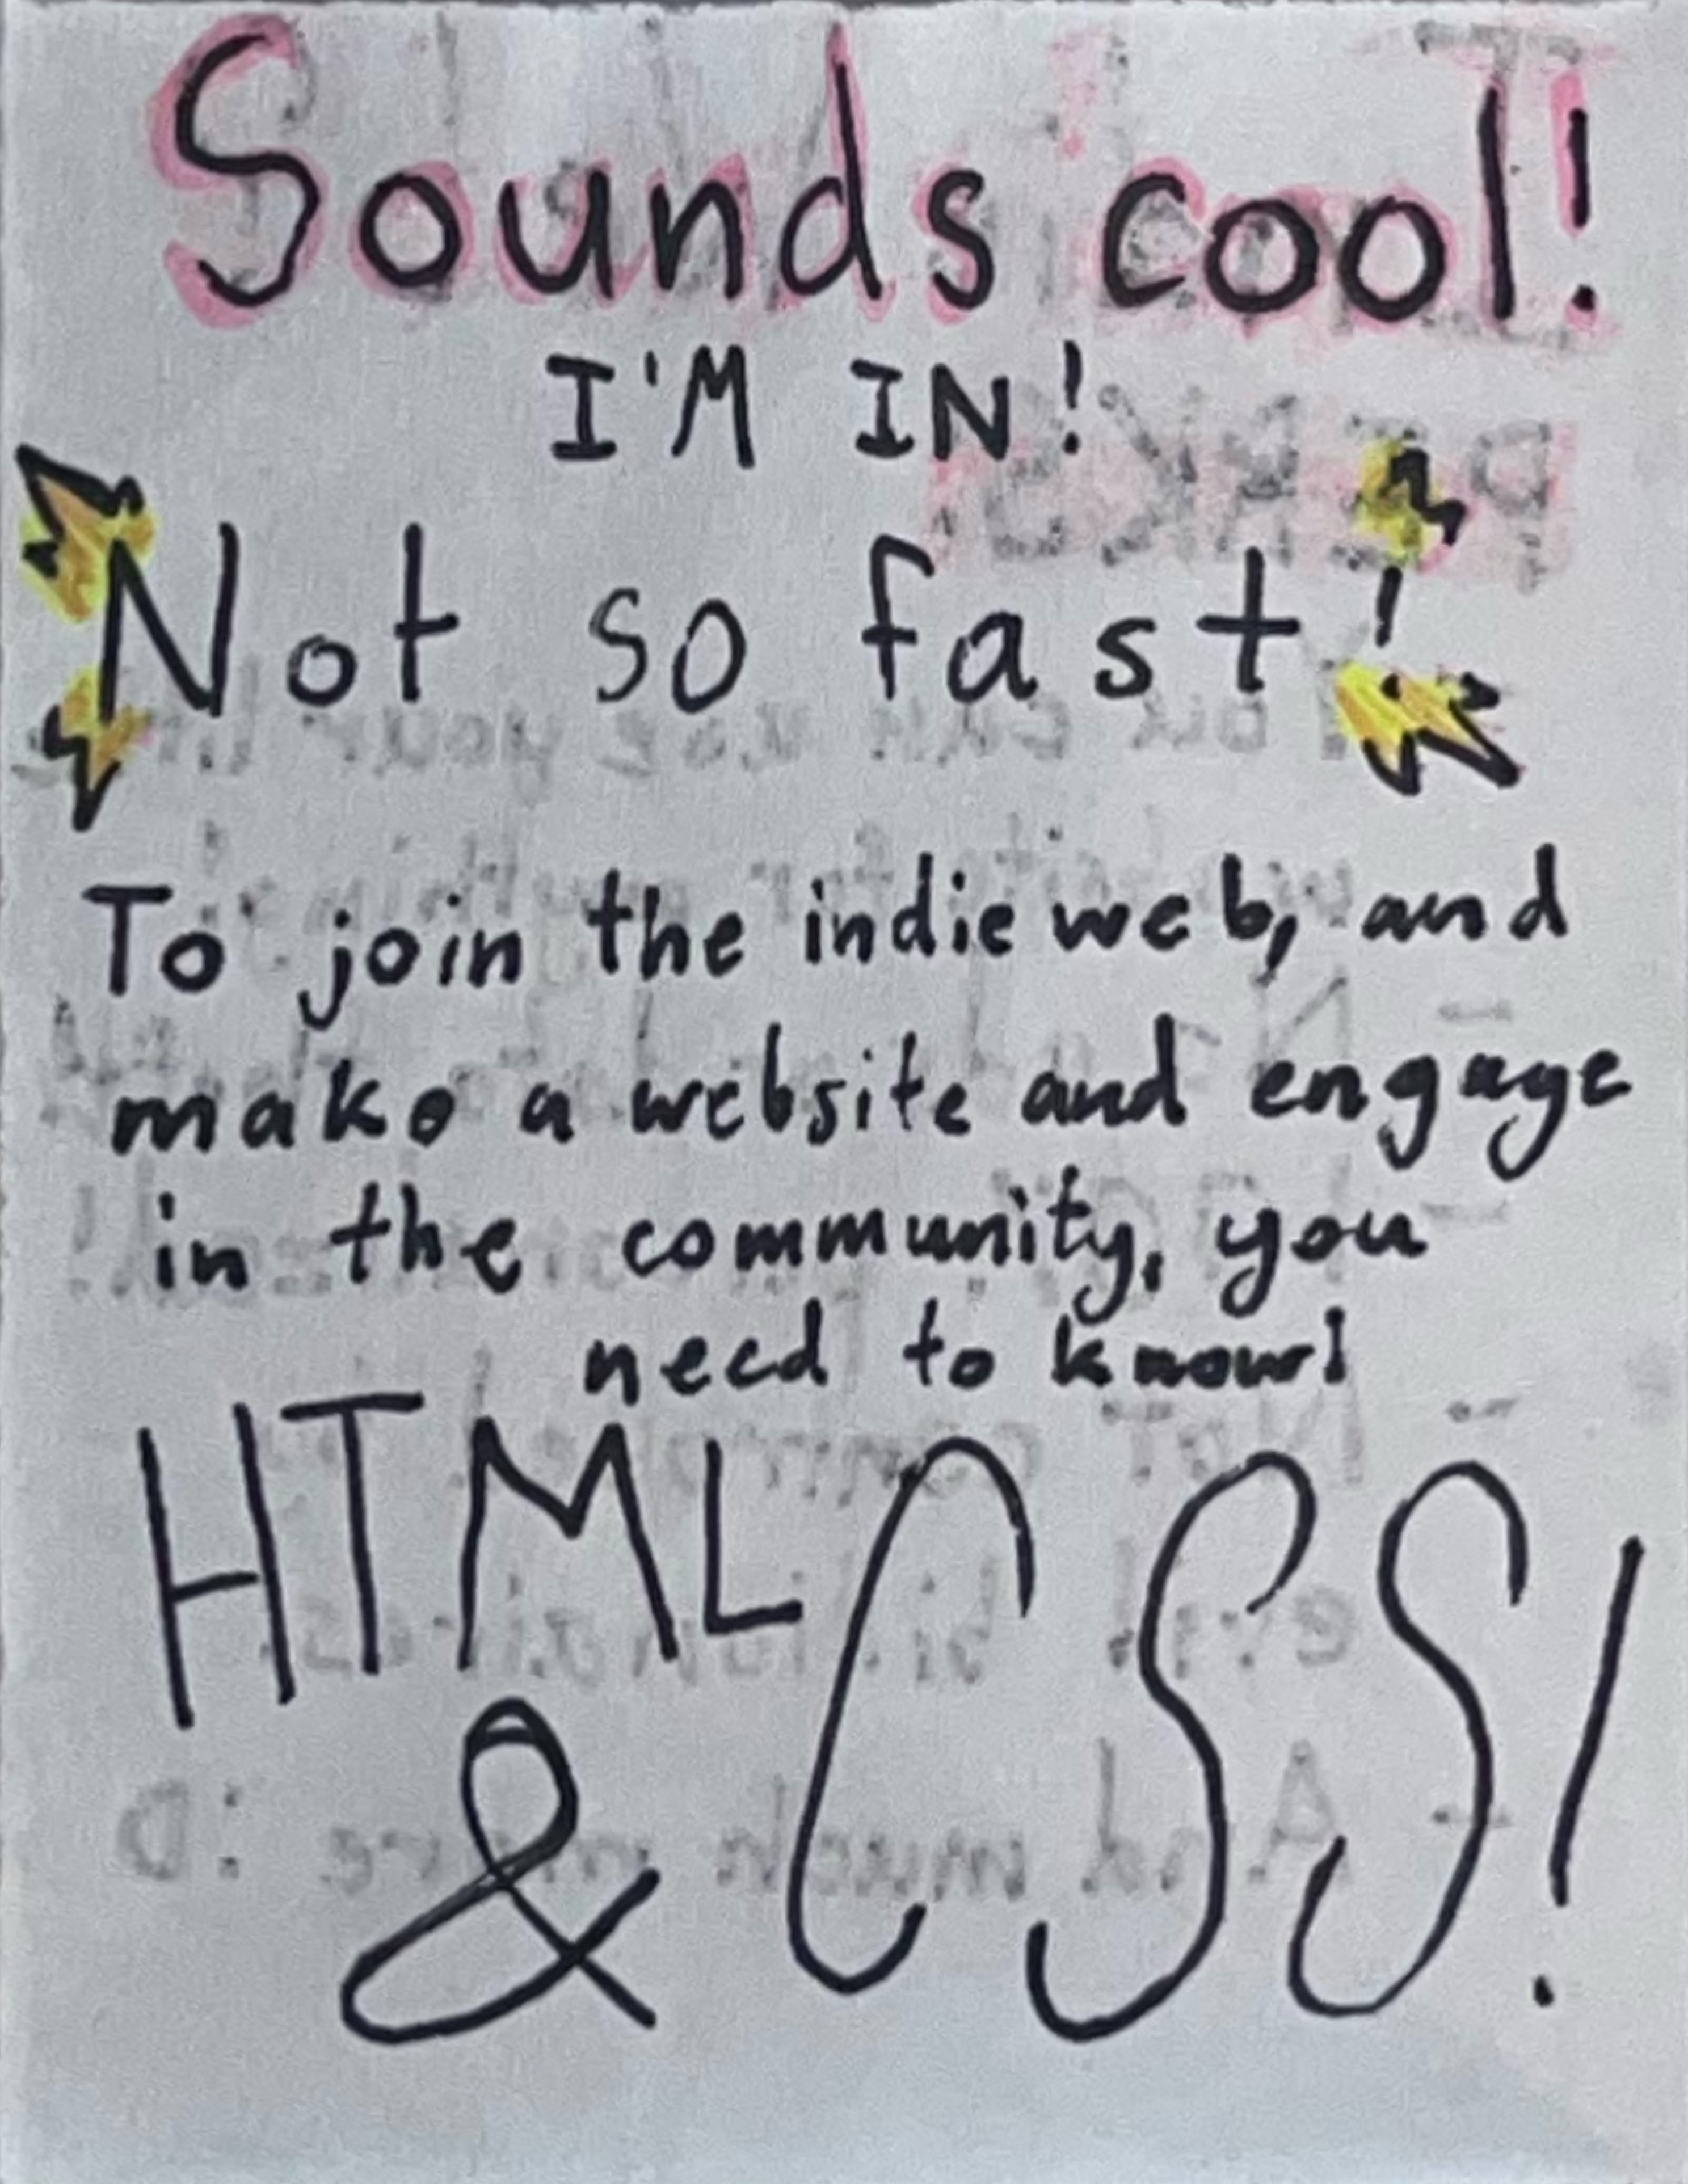 Sounds cool!
I'M IN!
Not so fast!
To join the indie web, and
make a website and engage
in the community, you
need to know!
HTML
& CSS!